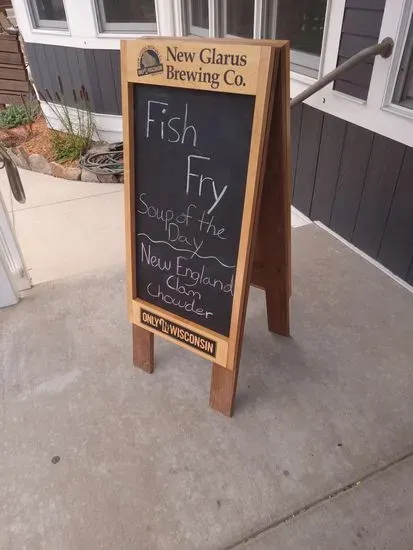 New Glarus
Brewing Co.
Fish
Fry
Soup of the
Day
New England
Clan
Chowder
ONLY IN WISCONSIN